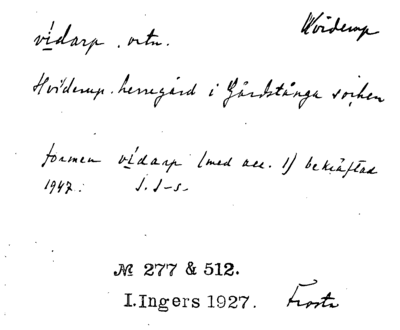 Hviderup
vídarp. ortn.
Hviderup. herregård i Gårdstånga socken
formen vídarp (med acc. 1) bekräftad
1947. I. I-s-
№ 277 & 512.
I. Ingers 1927. Frosta